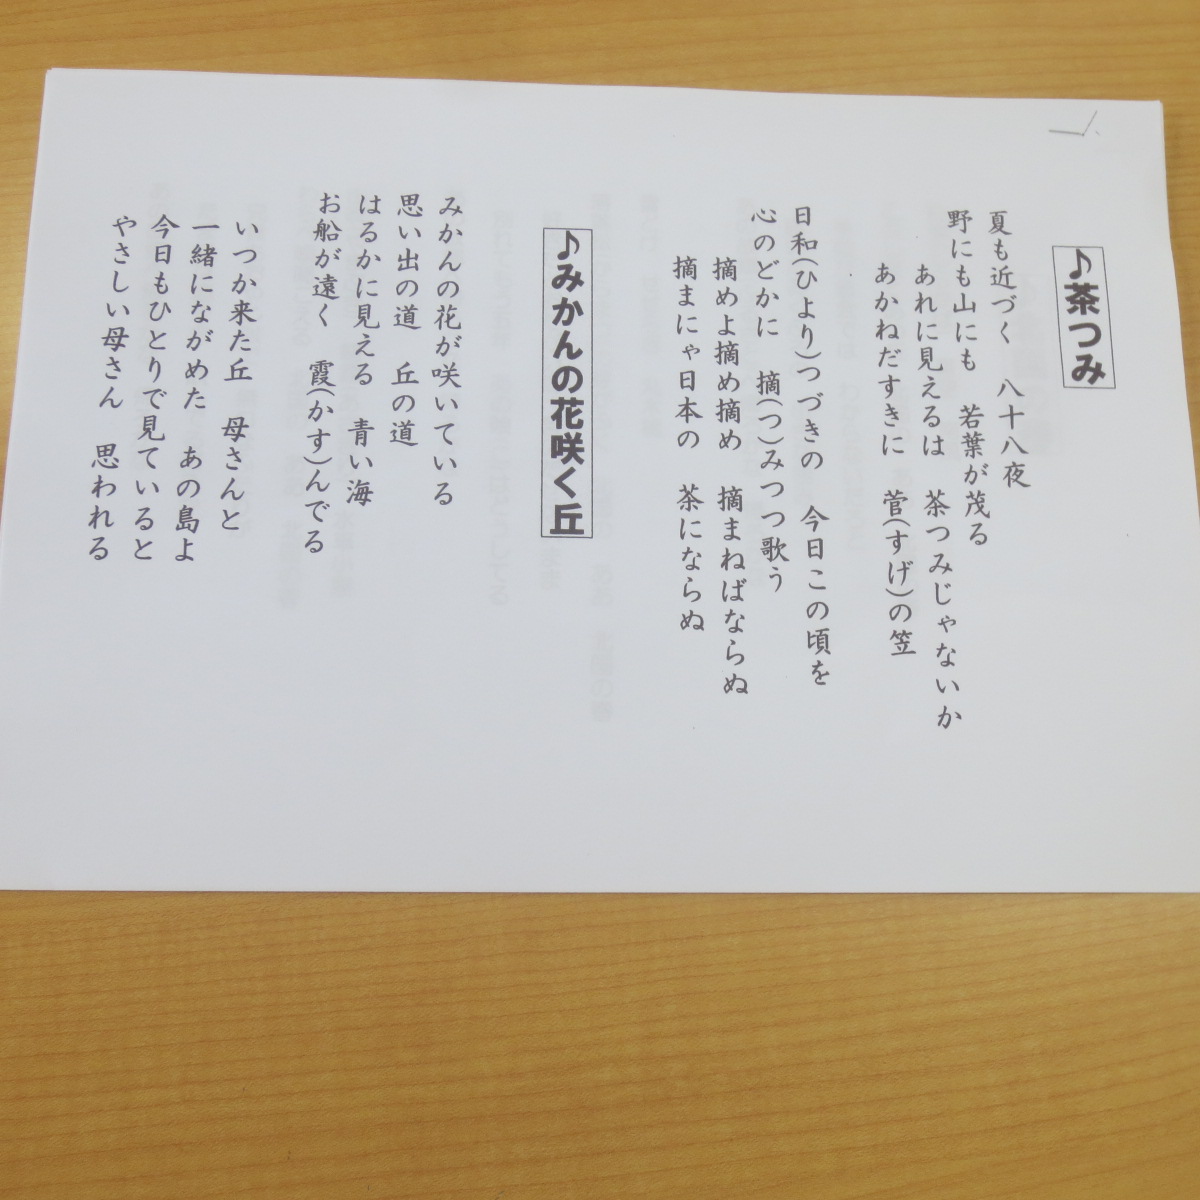 ♪茶つみ
夏も近づく　八十八夜
野にも山にも　若葉が茂る
あれに見えるは　茶つみじゃないか
あかねだすきに　菅(すげ)の笠
日和(ひより)つづきの　今日この頃を
心のどかに　摘(つ)みつつ歌う
摘めよ摘め摘め　摘まねばならぬ
摘まにゃ日本の　茶にならぬ
♪みかんの花咲く丘
みかんの花が咲いている
思い出の道　丘の道
はるかに見える　青い海
お船が遠く　霞(かす)んでる
いつか来た丘　母さんと
一緒にながめた　あの島よ
今日もひとりで見ていると
やさしい母さん　思われる